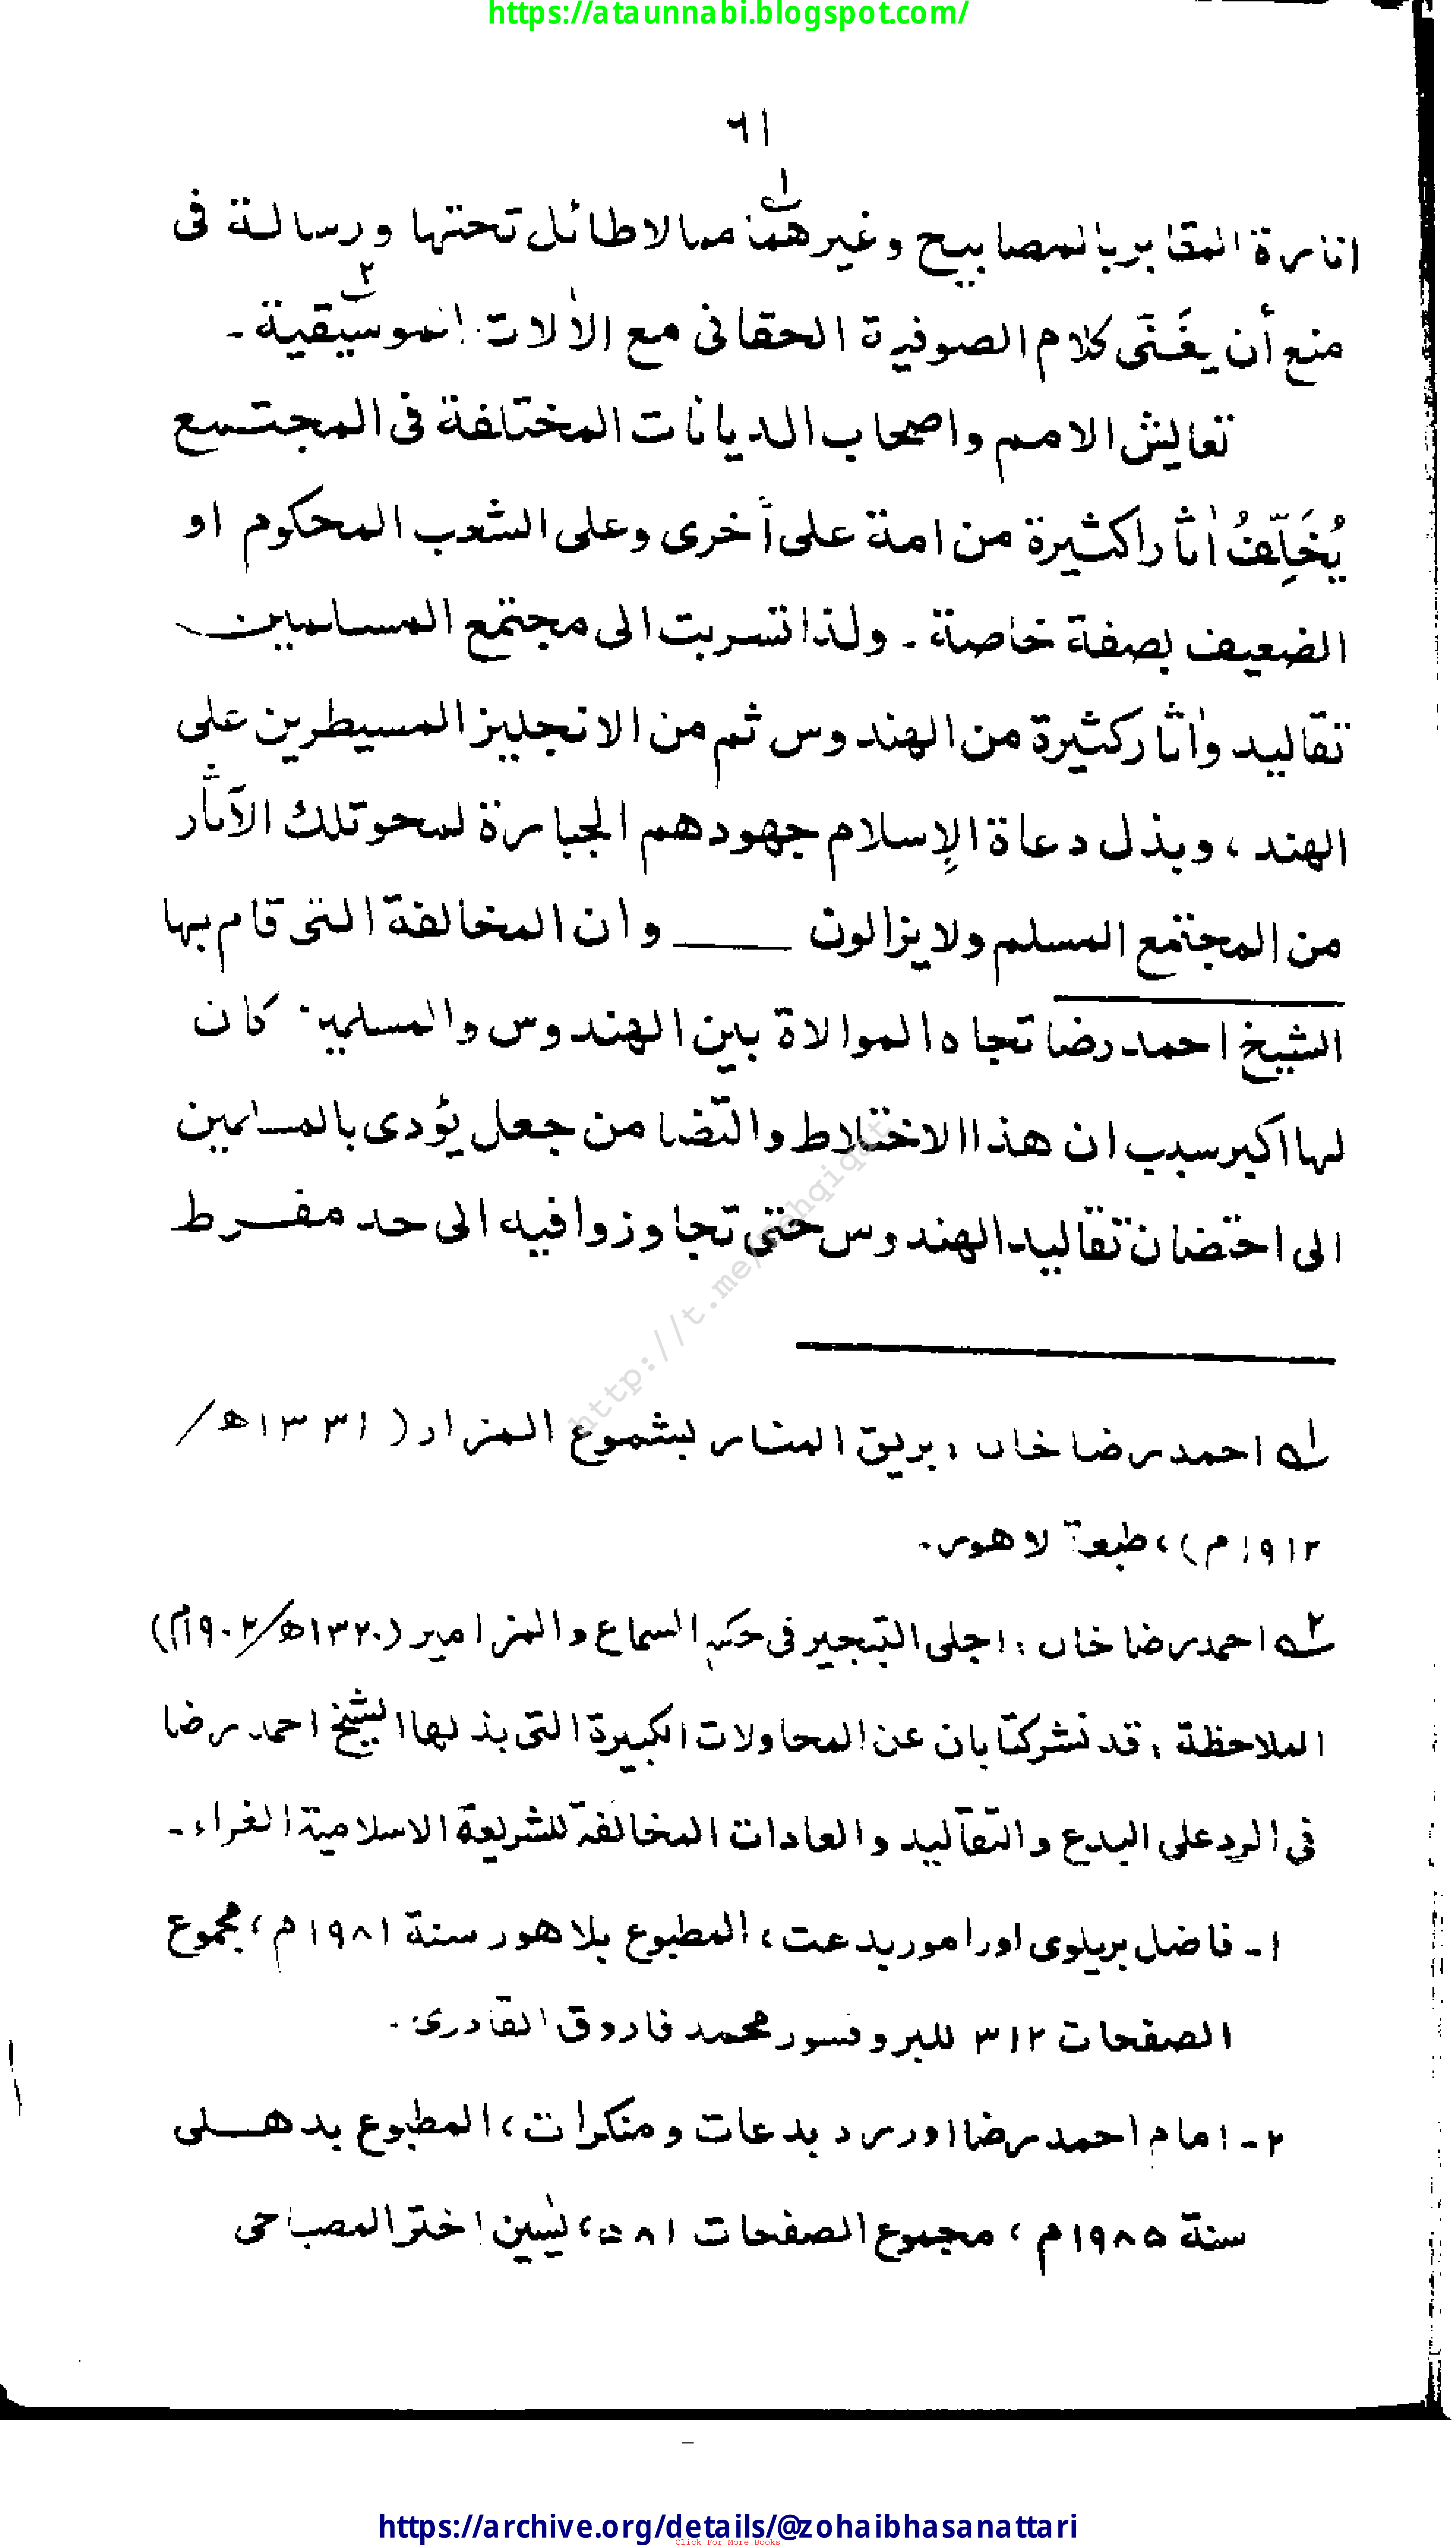 https://ataunnabi.blogspot.com/
٦١
انارة المقابر بالمصابيح وغيرهما مما لا طائل تحتها ورسالة فى
١
منع أن يغَنَّى كلام الصوفيرة الحقانى مع الأٰلات الموسيقية ۔
٢
تعاليش الامم واصحاب الديانات المختلفة فى المجتمع
يُخَلِّفُ اٰثارا كثيرة من امة على أخرى وعلى الشعب المحكوم او
الضعيف بصفة خاصة ۔ ولذا تسربت الى مجتمع المسلمين
تقاليد واٰثار كثيرة من الهندوس ثم من الانجليز المسيطرين على
الهند ، وبذل دعاة الإسلام جهودهم الجبارة لمحو تلك الآثار
من المجتمع المسلم ولا يزالون ـــــ وان المخالفة التى قام بها
الشيخ احمد رضا تجاه الموالاة بين الهندوس والمسلمين كان
لها اكبر سبب ان هذا الاختلاط والتضامن جعل يؤدى بالمسلمين
الى احتضان تقاليد الهندوس حتى تجاوزوا فيه الى حد مفرط
١ـه احمد رضا خاں : بريق المنار بشموع المزار ( ١٣٣١ھ/
١٩١٢م) ، طبعة لاهور۔
٢ـه احمد رضا خاں : اجلى التبجير فى حكم السماع والمزامير (١٣٢٠ھ/١٩٠٢م)
الملاحظة : قد نشر كتابان عن المحاولات الكبيرة التى بذلها الشيخ احمد رضا
فى الرد على البدع والتقاليد والعادات المخالفة للشريعة الاسلامية الغراء ۔
١ ـ فاضل بريلوى اور امور بدعت ، المطبوع بلاهور سنة ١٩٨١م ، مجموع
الصفحات ٣١٢ للبروفسور محمد فاروق القادرى ۔
٢ ـ امام احمد رضا اور رد بدعات و منكرات ، المطبوع بدهلى
سنة ١٩٨٥م ، مجموع الصفحات ٥٨١ ، يٰسين اختر المصباحى
https://archive.org/details/@zohaibhasanattari
Click For More Books